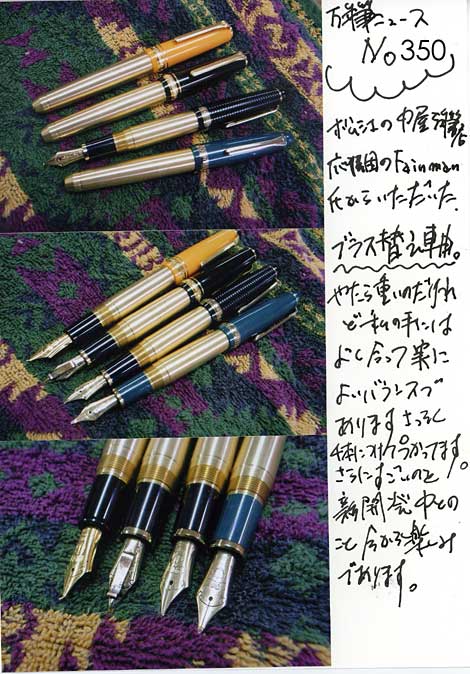 万年筆ニュース
No 350
松江の中屋
応援団のFainman
氏からいただいた
ブラス替え軸。
やたら重いのだけれ
ど私の手には
よく合って実に
よいバランスで
あります。さっそく
つかってます。
さらにすごいのを
新開発中との
こと今から楽しみ
であります。